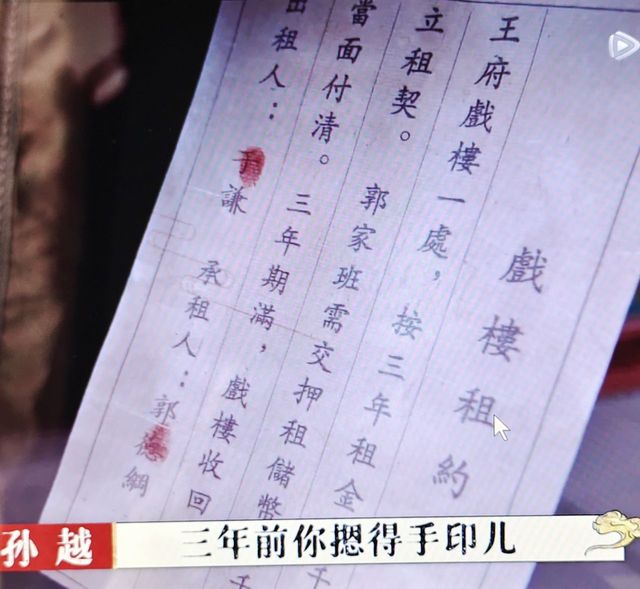 戲樓租約
王府戲樓一處，按三年租金
立租契。郭家班需交押租儲幣
當面付清。三年期滿，戲樓收回
出租人：于謙 承租人：郭德綱
孙越 三年前你摁得手印儿